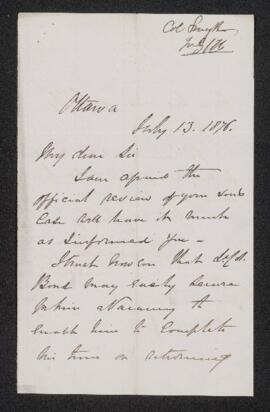 Col Smythe
July /76
Ottawa
July 13. 1876.
My dear Sir
I am afraid the
official review of your son's
Case will leave it much
as I informed you -
I trust now on that
Bond may easily secure
him a Vacancy to
enable him to Complete
his time on returning